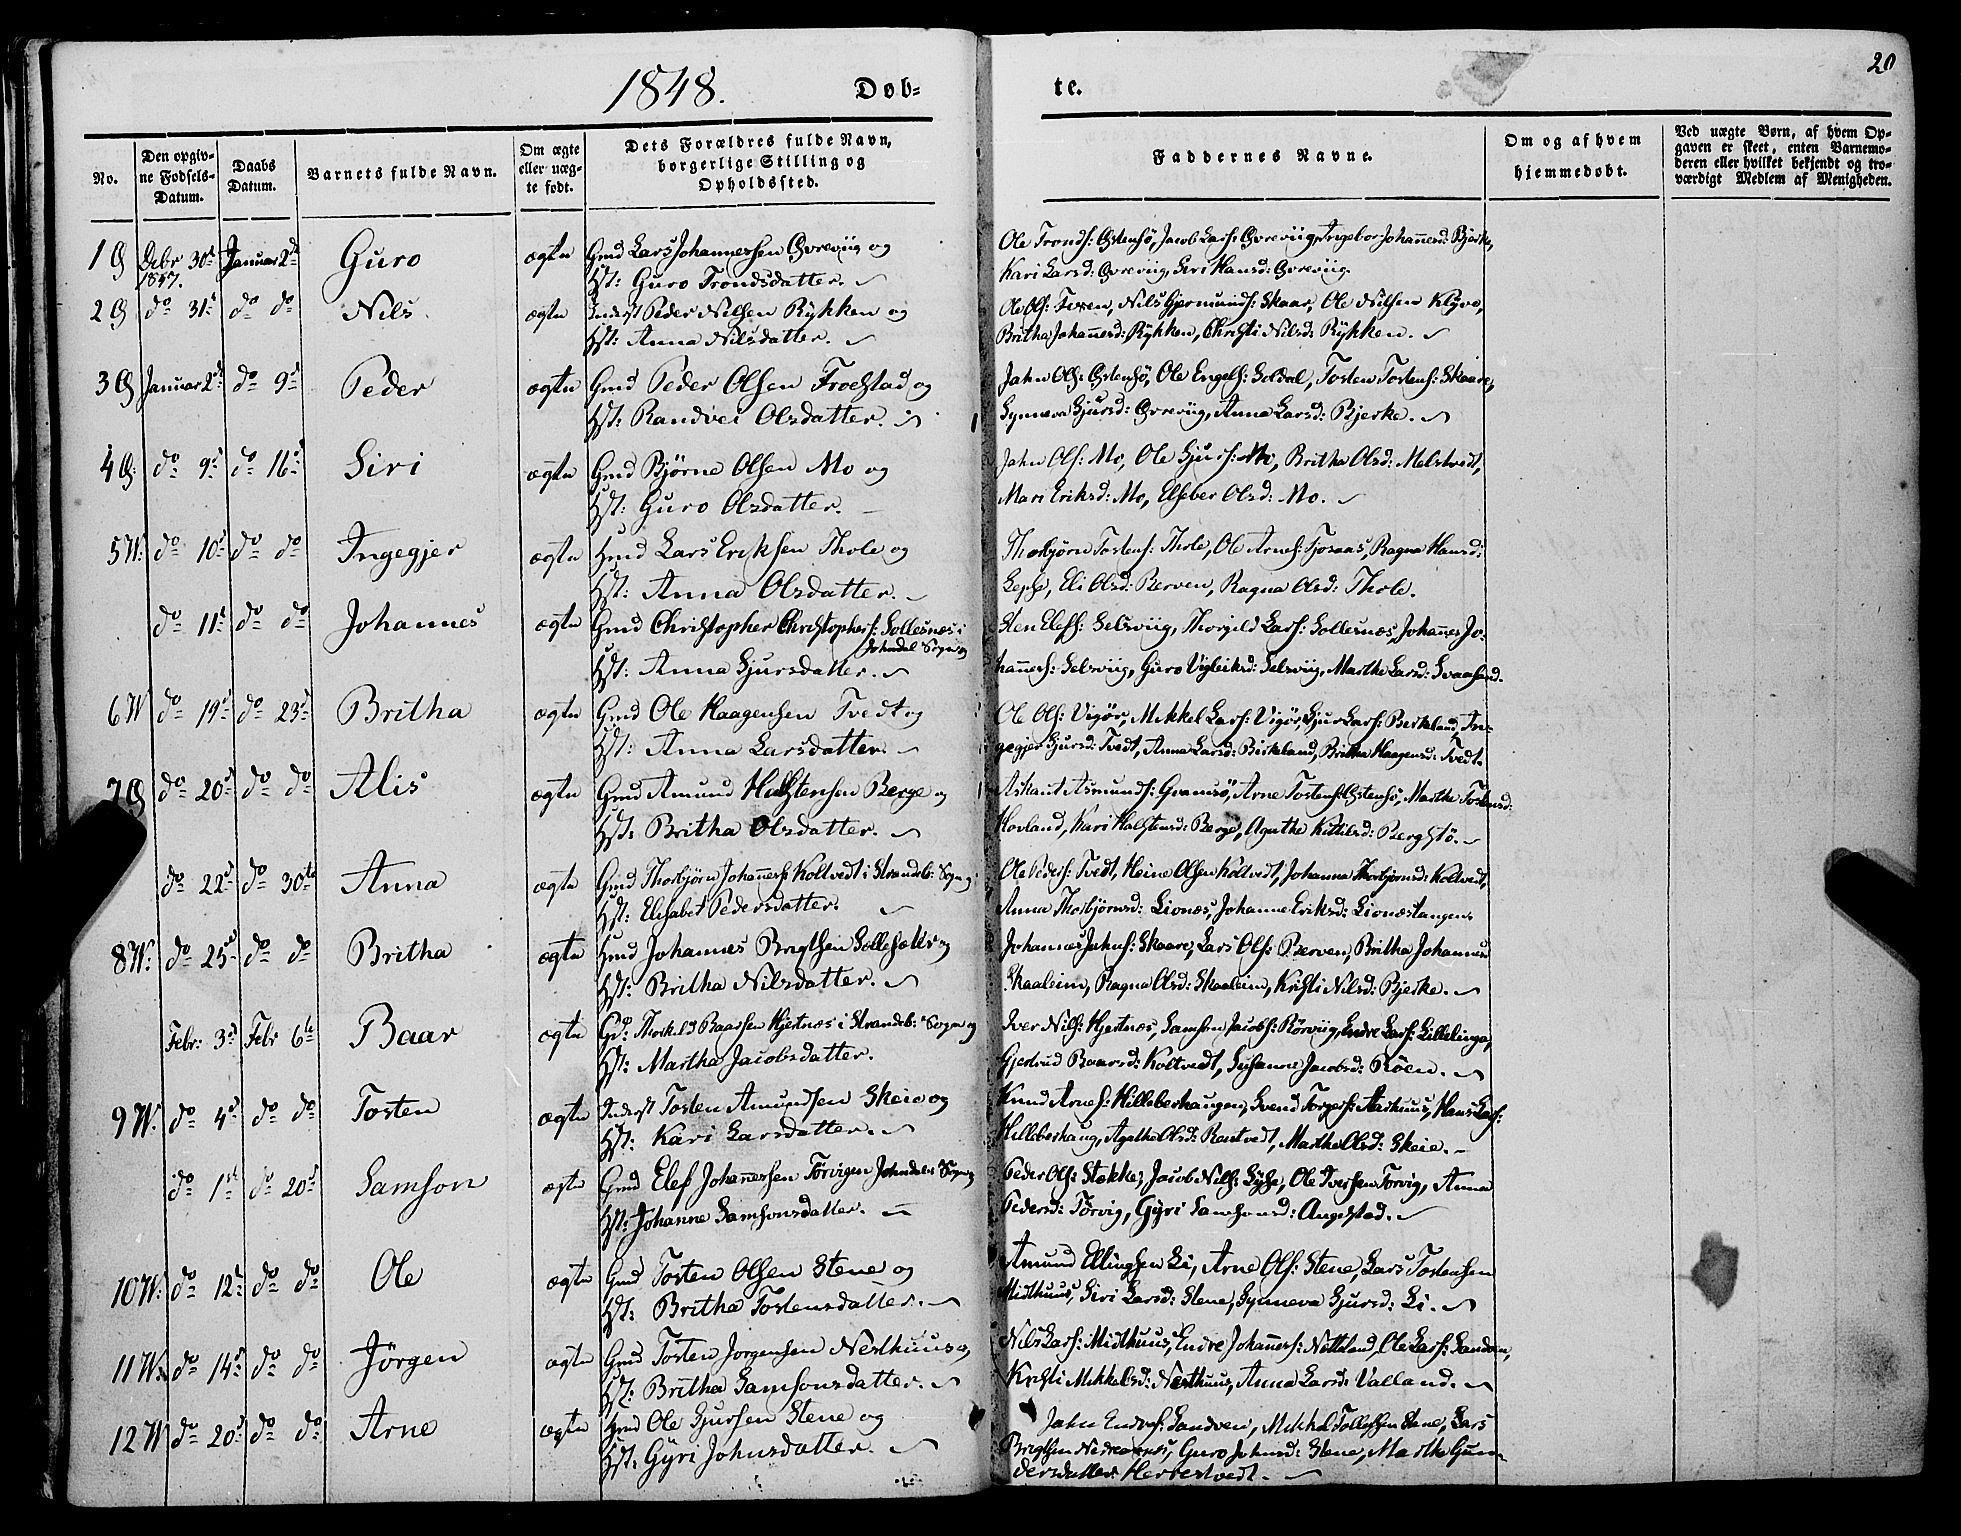 20
1848.
Døb-
te.
No.
Den opgiv-
ne Fødsels-
Datum.
Daabs
Datum.
Barnets fulde Navn.
Om ægte
eller uæg-
te født.
Dets Forældres fulde Navn,
borgerlige Stilling og
Opholdssted.
Faddernes Navne.
Om og af hvem
hjemmedøbt.
Ved uægte Børn, af hvem Op-
gaven er skeet, enten Barnemo-
deren eller hvilket bekjendt og tro-
værdigt Medlem af Menigheden.
1 Decbr 30 1847. Januar 2 Guro ægte Gmd Lars Johannessen Øvreviig og
Hst: Guro Trondsdatter.
Ole Tronds: Østensö, Jacob Lars: Øvreviig, Ingebor Johannesd: Bjerke,
Kari Larsd: Øvreviig, Siri Hansd: Øvreviig.
2 do 31 do do Nils ægte Inderst Peder Nilsen Rykken og
Hst: Anna Nilsdatter.
Ole Ols: Nils Gjermunds: Skaar, Ole Nilsen Klyve,
Britha Johannesd: Rykken, Christi Nilsd: Rykken.
3 Januar 2 do 9 Peder ægte Gmd Peder Olsen Froestad og
Hst: Randvei Olsdatter.
Jahn Ols: Östensö, Ole Engels: Soldal, Tosten Tostens: Skaare,
Synneva Gjursd: Øvreviig, Anna Larsd: Bjerke.
4 do 9 do 16 Siri ægte Gmd Björne Olsen Mo og
Hst: Guro Olsdatter.
Jahn Ols: Mo, Ole Gjurs: Mo, Britha Olsd: Melstvedt,
Mari Eriksd: Mo, Elseber Olsd: Mo.
5 W: do 10 do do Ingegjer ægte Hmd Lars Eriksen Thole og
Hst: Anna Olsdatter.
Thorbjörn Tostens: Thole, Ole Arnes: Fjosaas, Ragna Hansd:
Eli Olsd: Berven, Ragna Olsd: Thole.
do 11 do do Johannes ægte Gmd Christopher Christophers: Sollesnæs i
Johndal Sogn og
Hst: Anna Gjursdatter.
Sten Elefs: Selsviig, Thorgild Lars: Sollesnæs, Johannes Jo-
hannes: Selsviig, Guro Vigleiksd: Selsviig, Martha Larsd: Svaasand.
6 W do 19 do 23 Britha ægte Gmd Ole Haagensen Tvedt og
Hst: Anna Larsdatter.
Ole Ols: Vigör, Mikkel Lars: Vigör, Gjur Lars: Berkeland, In-
gegjer Gjursd: Tvedt, Anna Larsd: Birkeland, Britha Haagensd: Tvedt.
7 do 20 do do Alis ægte Gmd Amund Halstensen Berge og
Hst: Britha Olsdatter.
Askant Asmunds: Gramsö, Arne Tostens: Östensö, Martha Tostensd:
Hovland, Kari Halstensd: Berge, Agatha Kittilsd: Bergstö.
do 22 do 30te Anna ægte Gmd Thorbjörn Johannes: Koltvedt i Strandeb: Sogn og
Hst: Elisabet Pedersdatter.
Ole Peders: Tvedt, Heine Olsen Koltvedt, Johanna Thorbjörnsd: Koltvedt,
Anna Thorbjörnsd: Lionæs, Johanne Eriksd: Lionæstangen.
8 W: do 25 do do Britha ægte Hmd Johannes Brigtsen Sollesætter og
Hst: Britha Nilsdatter.
Johannes Jahns: Skaare, Lars Ols: Berven, Britha Johannesd
Skaaleim, Ragna Olsd: Skaaleim, Kristi Nilsd: Bjerke.
Febr: 3 Febr 6te Baar ægte Gd: Thorkild Baarsen Hjertnæs i Strandeb: Sogn og
Hst: Martha Jacobsdatter.
Iver Nils: Hjertnæs, Samson Jacobs: Rörviig, Endre Lars: Lillelinga,
Gjertrud Baarsd: Koltvedt, Susanne Jacobsd: Röen.
9 W. do 4 do do Tosten ægte Inderst Tosten Amundsen Skeie og
Hst: Kari Larsdatter.
Knud Arnes: Hilleberhaugen, Svend Torgers: Aarhuus, Hans Lars:
Hilleberhaug, Agatha Olsd: Rentvedt, Martha Olsd: Skeie.
do 1 do 20 Samson ægte Gmd Elef Johannessen Törvigen Johndals Sogn og
Hst: Johanne Samsonsdatter.
Peder Ols: Stække, Jacob Nils: Ole Iversen Torvig, Anna
Pedersd: Törvig, Gyri Samsonsd: Angelstad.
10 W: do 12 do do Ole ægte Gmd Tosten Olsen Stene og
Hst: Britha Tostensdatter.
Amund Ellingsen Li, Arne Ols: Stene, Lars Tostensen
Midthuus, Siri Larsd: Stene, Synneva Gjursd: Li.
11 W: do 14 do do Jörgen ægte Gmd Tosten Jorgensen Nesthuus og
Hst: Britha Samsonsdatter.
Nils Lars: Midthuus, Endre Johannes: Nottland, Ole Lars: Sandven,
Kristi Mikkelsd: Nesthuus, Anna Larsd: Valland.
12 W do 20 do do Arne ægte Gmd Ole Gjursen Stene og
Hst: Gyri Johnsdatter.
Jahn Endres: Sandven, Mikkel Tollefsen Stene, Lars
Brigtsen Guro Johnsd: Stene, Martha Gun-
dersdatter Herrestvedt.